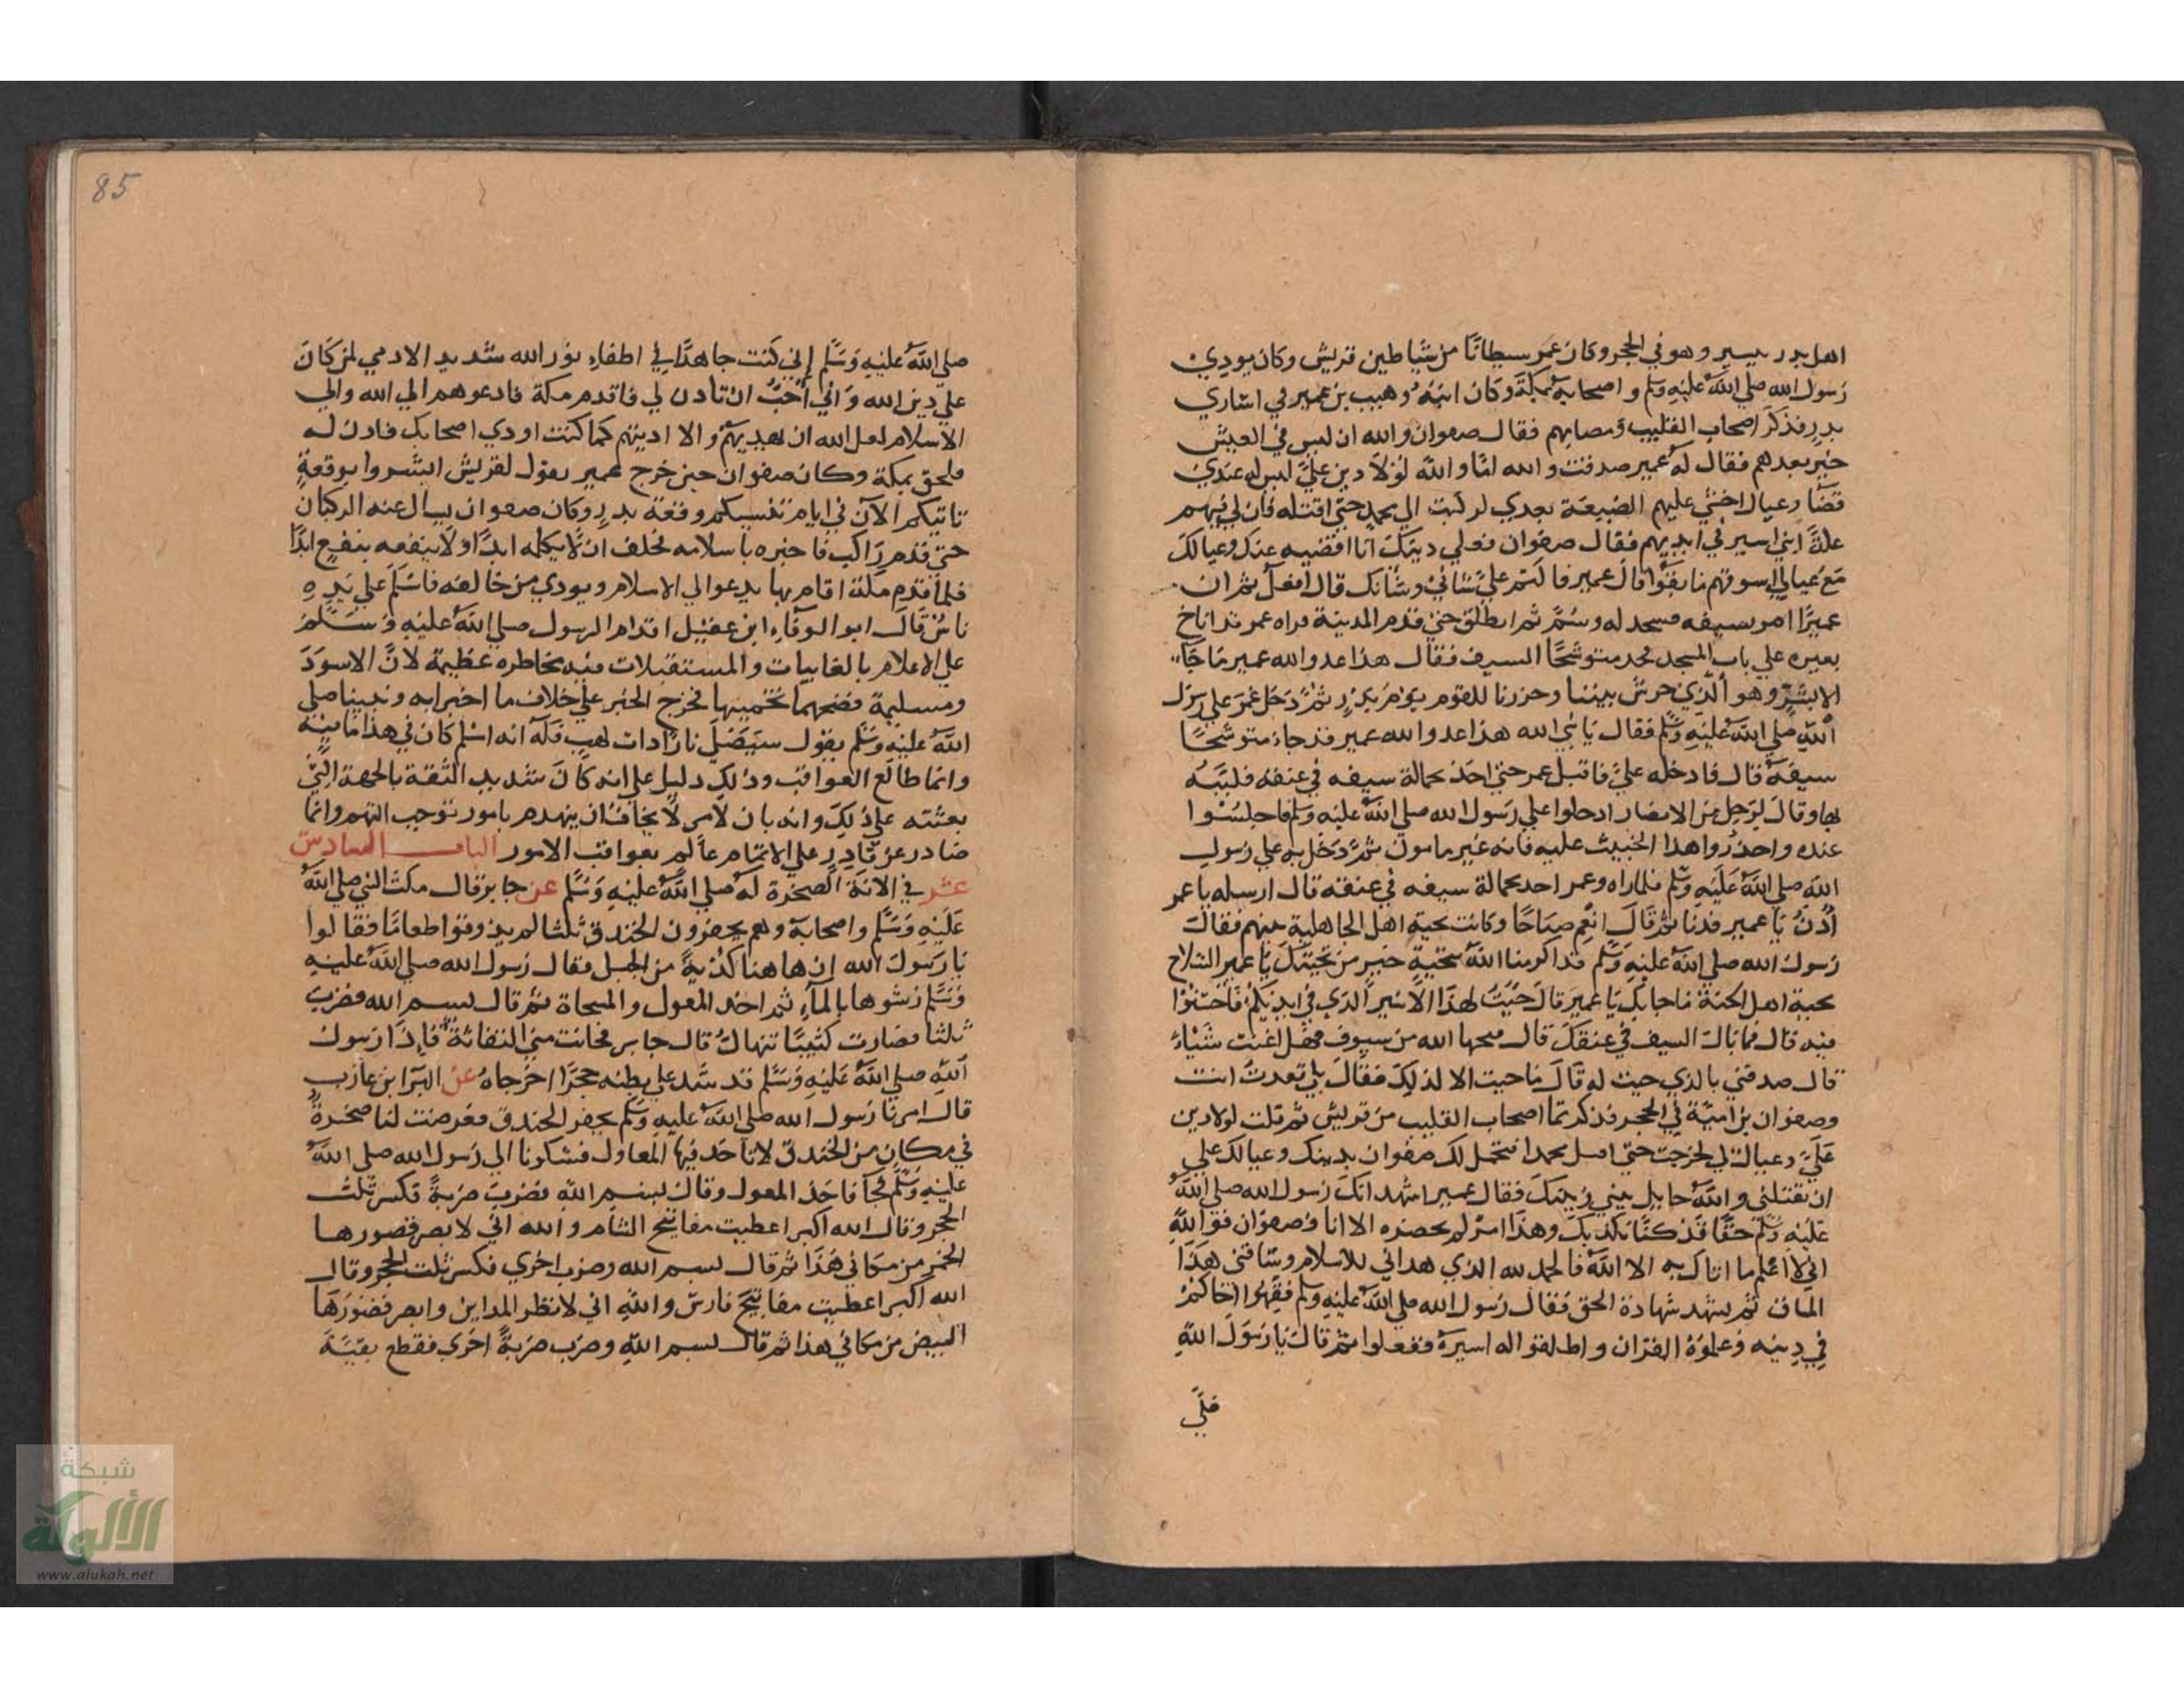 اهل بدر بيسير وهو في الحجر وكان عمير شيطانًا من شياطين قريش وكان يودي
رسول الله صلي الله عليه وسلم واصحابه بمكة وكان ابنه وهيب بن عمير في اساري
بدر فذكر اصحاب القليب ومصابهم فقال صفوان والله ان ليس في العيش
خير بعدهم فقال له عمير صدقت والله اما والله لولا دين علي ليس له عندي
قضا وعيال اخشي عليهم الضيعة بعدي لركبت الي محمد حتي اقتله فان لي فيهم
علة ابني اسير في ايديهم فقال صفوان فعلي دينك انا اقضيه عنك وعيالك
مع عيالي اسوتهم ما بقوا قال عمير فاكتم علي شاني وشانك قال افعل ثم ان
عميرًا امر بسيفه فشحد له وسم ثم انطلق حتي قدم المدينة فراه عمر قد اناخ
بعيره علي باب المسجد متوشحًا السيف فقال هذا عدو الله عمير ما جا
الا بشر وهو الذي حرش بيننا وحزرنا للقوم يوم بدر ثم دخل عمر علي رسول
الله صلي الله عليه وسلم فقال يا نبي الله هذا عدو الله عمير قد جاء متوشحًا
سيفه قال فادخله علي فاقبل عمر حتي اخذ بحمالة سيفه في عنقه فلببه
بها وقال لرجل من الانصار ادخلوا علي رسول الله صلي الله عليه وسلم فاجلسوا
عنده واحذروا هذا الخبيث عليه فانه غير مامون ثم دخل به علي رسول
الله صلي الله عليه وسلم فلما راه وعمر اخد بحمالة سيفه في عنقه قال ارسله يا عمر
أدن يا عمير فدنا ثم قال انعم صباحًا وكانت تحية اهل الجاهلية بينهم فقال
رسول الله صلي الله عليه وسلم قد اكرمنا الله بتحية خير من تحيتك يا عمير السلام
تحية اهل الجنة ما جا بك يا عمير قال جيت لهذا الاسير الذي في ايديكم فاحسنوا
فيه قال فما بال السيف في عنقك قال قبحها الله من سيوف فهل اغنت شيئاء
قال صدقني بالذي جيت له قال ما جيت الا لذلك فقال بلي قعدت انت
وصفوان بن امية في الحجر فذكرتما اصحاب القليب من قريش ثم قلت لولا دين
علي وعيال لي لخرجت حتي اقتل محمدا فتحمل لك صفوان بدينك وعيالك علي
ان تقتلني والله حايل بيني وبينك فقال عمير اشهد انك رسول الله صلي الله
عليه وسلم حقًا قد كنا نكذبك وهذا امر لم يحضره الا انا وصفوان فو الله
اني لا اعلم ما اتاك به الا الله فالحمد لله الذي هداني للاسلام وساقني هذا
المساق ثم شهد شهادة الحق فقال رسول الله صلي الله عليه وسلم فقهوا اخاكم
في دينه وعلموه القران واطلقوا له اسيره ففعلوا ثم قال يا رسول الله
صلي الله عليه وسلم إني كنت جاهدًا في اطفاء نور الله شديد الادي لمن كان
علي دين الله واني أحب ان تادن لي فاقدم مكة فادعوهم الي الله والي
الاسلام لعل الله ان يهديهم والا اديتهم كما كنت اودي اصحابك فادن له
فلحق بمكة وكان صفوان حين خرج عمير يقول لقريش ابشروا بوقعة
تاتيكم الآن في ايام تنسيكم وقعة بدر وكان صفوان يسال عنه الركبان
حتي قدم راكب فاخبره باسلامه فحلف ان لا يكلمه ابدًا ولا ينفعه بنفع ابدًا
فلما قدم مكة اقام بها يدعو الي الاسلام ويودي من خالفه فاسلم علي يده
ناس قال ابو الوفاء ابن عقيل اقدام الرسول صلي الله عليه وسلم
علي الاعلام بالغايبات والمستقبلات فيه مخاطره عظيمة لان الاسود
ومسليمة فضحهما تخمينهما فخرج الخبر علي خلاف ما اخبرا به ونبينا صلي
الله عليه وسلم يقول سيصلي نارًا دات لهب فلو انه اسلم كان في هذا ما فيه
وانما طالع العواقب وذلك دليل علي انه كان شديد الثقة بالجهة التي
بعثته علي ذلك وانه بان لامر لا يخاف ان ينهدم بامور توجب التهم وانما
صادر عن قادر علي الاتمام عالم بعواقب الامور الباب السادس
عشر في الانة الصخرة له صلي الله عليه وسلم عن جابر قال مكث النبي صلي الله
عليه وسلم واصحابه وهم يحفرون الخندق ثلثا لم يذوقوا طعامًا فقالوا
يا رسول الله ان ها هنا كدية من الجبل فقال رسول الله صلي الله عليه
وسلم رشوها بالماء ثم اخد المعول والمسحاة ثم قال بسم الله فضرب
ثلثا فصارت كثيبًا تنهال قال جابر فحانت مني التفاتة فاذا رسول
الله صلي الله عليه وسلم قد شد علي بطنه حجرًا اخرجاه عن البرا بن عازب
قال امرنا رسول الله صلي الله عليه وسلم بحفر الخندق فعرضت لنا صخرة
في مكان من الخندق لا تاخذ فيها المعاول فشكونا الي رسول الله صلي الله
عليه وسلم فجآ فاخذ المعول وقال بسم الله فضرب ضربة فكسر ثلث
الحجر وقال الله اكبر اعطيت مفاتيح الشام والله اني لابصر قصورها
الحمر من مكاني هذا ثم قال بسم الله وضرب اخري فكسر ثلث الحجر وقال
الله اكبر اعطيت مفاتيح فارس والله اني لانظر المداين وابصر قصورها
البيض من مكاني هذا ثم قال بسم الله وضرب ضربة اخري فقطع بقية
85
شبكة
الألوكة
www.alukah.net